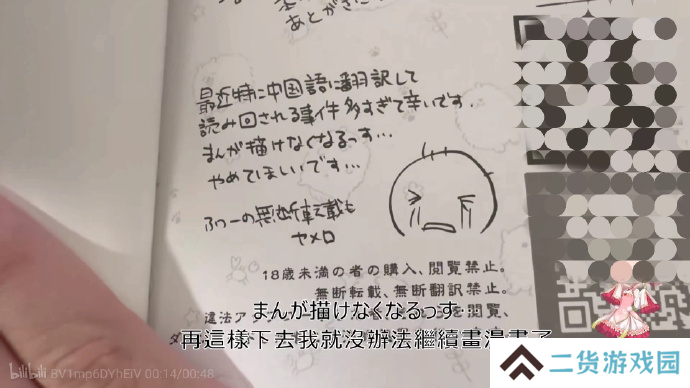 あとがき
最近特に中国語に翻訳して
読み回される事件多すぎて辛いです.
まんが描けなくなるっす…
やめてほしいです…
ふつーの無断転載も
ヤメロ
18歳未満の者の購入、閲覧禁止。
無断転載、無断翻訳禁止。
違法ア
を閲覧、
まんが描けなくなるっす…
再這樣下去我就沒辦法繼續畫漫畫了
bilibili BV1mp6DYhEiV 00:14/00:48
二货游戏园